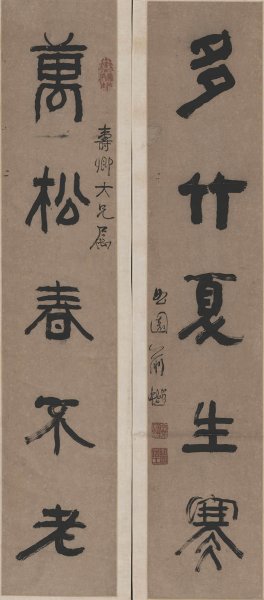 多竹夏生寒
曲園俞樾
壽卿大兄屬
萬松春不老